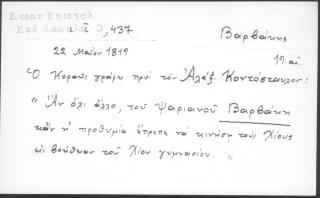 Κοραη Επιστολ
Εκδ Δαμαλᾶ 3, 437
Βαρβάκης
22 Μαΐου 1819
19. αἰ.
Ὁ Κοραῆς γράφει πρὸς τὸν Ἀλέξ. Κοντόσταυλον:
"Ἂν ὄχι ἄλλο, τοῦ Ψαριανοῦ Βαρβάκη
κἂν ἡ προθυμία ἔπρεπε νὰ κινήσῃ τοὺς Χίους
εἰς βοήθειαν τοῦ Χίου γυμνασίου. "